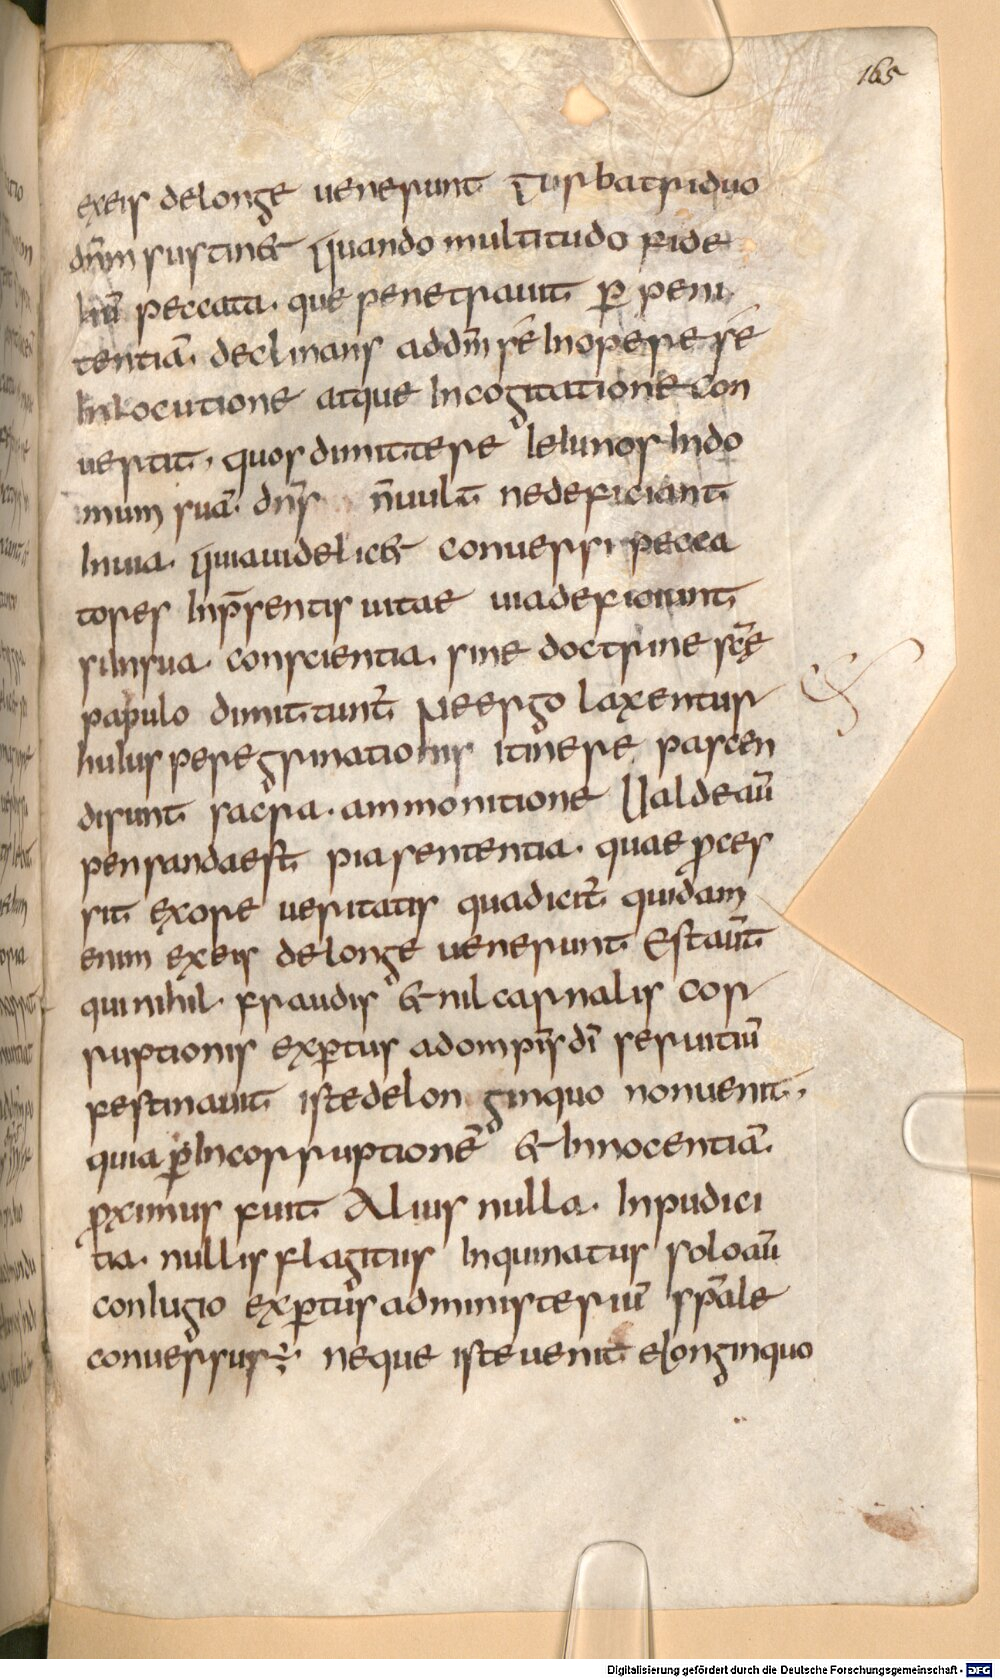 165
exeis delonge uenerunt Turba triduo
dn̄m sustin& Quando multitudo fide
liū peccata. que penetrauit p̄ peni
tentiā. declinans addn̄m sē Inopere sē
Inlocutione atque Incogitatione con
uertit. quos dimittere Ieiunos Indo
mum suā. dn̄s n̄uult nedeficiant
Inuia. Quiauidelic& conuersi pecca
tores Inp̄sentis uitae uiadeficiunt.
siInsua. conscientia. sine doctrine sc̄ę
papulo dimittunt̄. Neergo laxentur
huIus peregrinationis itinere pascen
disunt sacra. ammonitione Ualdeaū
pensandaest pia sententia. quae p̄ces
sit exore ueritatis quadicit̄. quidam
enim exeis delonge uenerunt Estaūt
quinihil fraudis & nil carnalis cor
ruptionis exp̄tus adomp̄is dī seruitiū
festinauit istedelon ginquo nonuenit.
quia p̄Incorruptionē & Innocentiā.
p̄ximus fuit. Alius nulla. Inpudici
tia. nullis flagitus Inquinatus soloaū
conIugio exp̄tus administeriū sp̄ale
conuersus; neque iste uenit elonginquo
Digitalisierung gefördert durch die Deutsche Forschungsgemeinschaft - DFG